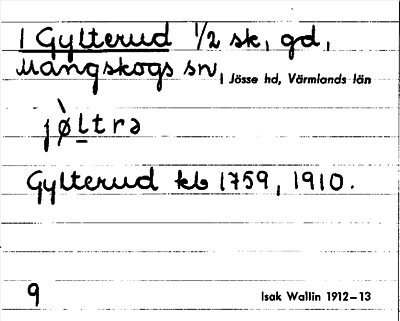 1 Gylterud 1/2 sk, gd,
Mangskogs sn, Jösse hd, Värmlands län
jø̀ḻtrə
Gylterud kb 1759, 1910.
9 Isak Wallin 1912–13